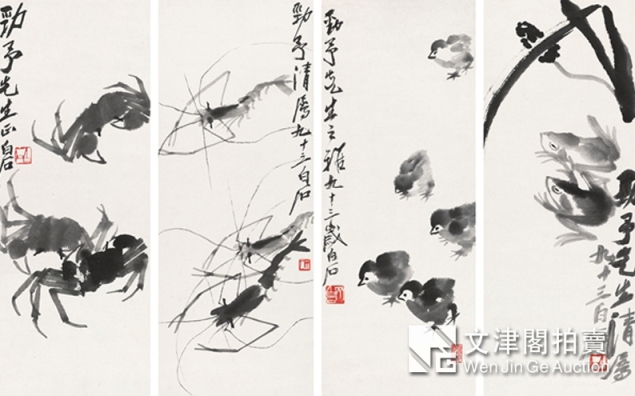 勁予先生正白石
勁予清屬九十三白石
勁予先生之雅九十三歲白石
勁予先生清屬
九十三白石
文津閣拍賣
WenJinGe Auction